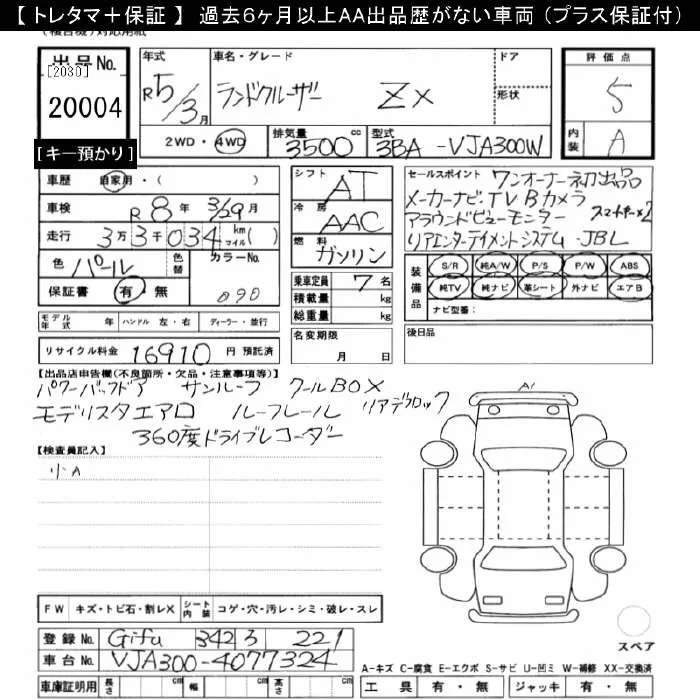 【 トレタマ＋保証 】 過去6ヶ月以上AA出品歴がない車両（プラス保証付）
出品No.
[2030]
20004
[キー預かり]
年式 R5/3月
車名・グレード ランドクルーザー ZX
ドア
形状
評価点 5
内装 A
2WD・4WD 排気量 3500 cc 型式 3BA-VJA300W
車歴 自家用・( )
車検 R8年3/29月
走行 3万3千034 km マイル( )
色 パール 色替 カラーNo. 090
保証書 有・無
モデル年式 年 ハンドル 左・右 ディーラー・並行
リサイクル料金 16910 円 預託済
シフト AT
冷房 AAC
燃料 ガソリン
乗車定員 7 名
積載量 kg
総重量 kg
名変期限 月 日
セールスポイント ワンオーナー初出品
メーカーナビ・TV Bカメラ
アラウンドビューモニター スマートキー×2
リアエンターテイメントシステム・JBL
装備品 S/R 純A/W P/S P/W ABS
純TV 純ナビ 革シート 外ナビ エアB
ナビ型番：
後日品
【出品店申告欄(不良箇所・欠品・注意事項等)】
パワーバックドア サンルーフ クールBOX
モデリスタエアロ ルーフレール リアデフロック
360度ドライブレコーダー
【検査員記入】
小A
A1
FW キズ・トビ石・割レX シート内装 コゲ・穴・汚レ・シミ・破レ・スレ
登録No. Gifu 342 ろ 221
車台No. VJA300-4077324
車庫証明用 長さ cm 幅 cm 高さ cm
スペア
A-キズ C-腐食 E-エクボ S-サビ U-凹ミ W-補修 XX-交換済
工具 有・無 ジャッキ 有・無